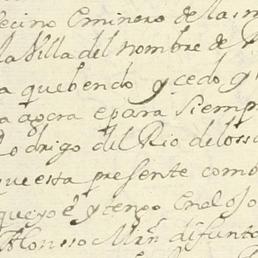 Vecino Eminero de las m
la Villa del nombre de
a que bendo y cedo y
a agora e para siemp
Rodrigo del Rio de loss
que esta presente comb
que yo e y tengo En el
Alonsso Mrn difunto